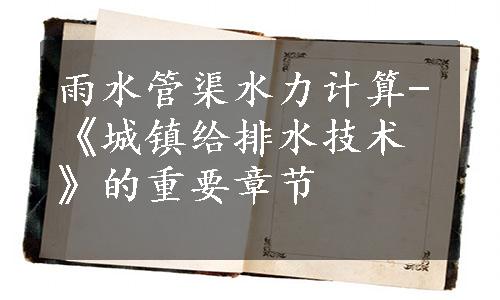 雨水管渠水力计算-
《城镇给排水技术
》的重要章节